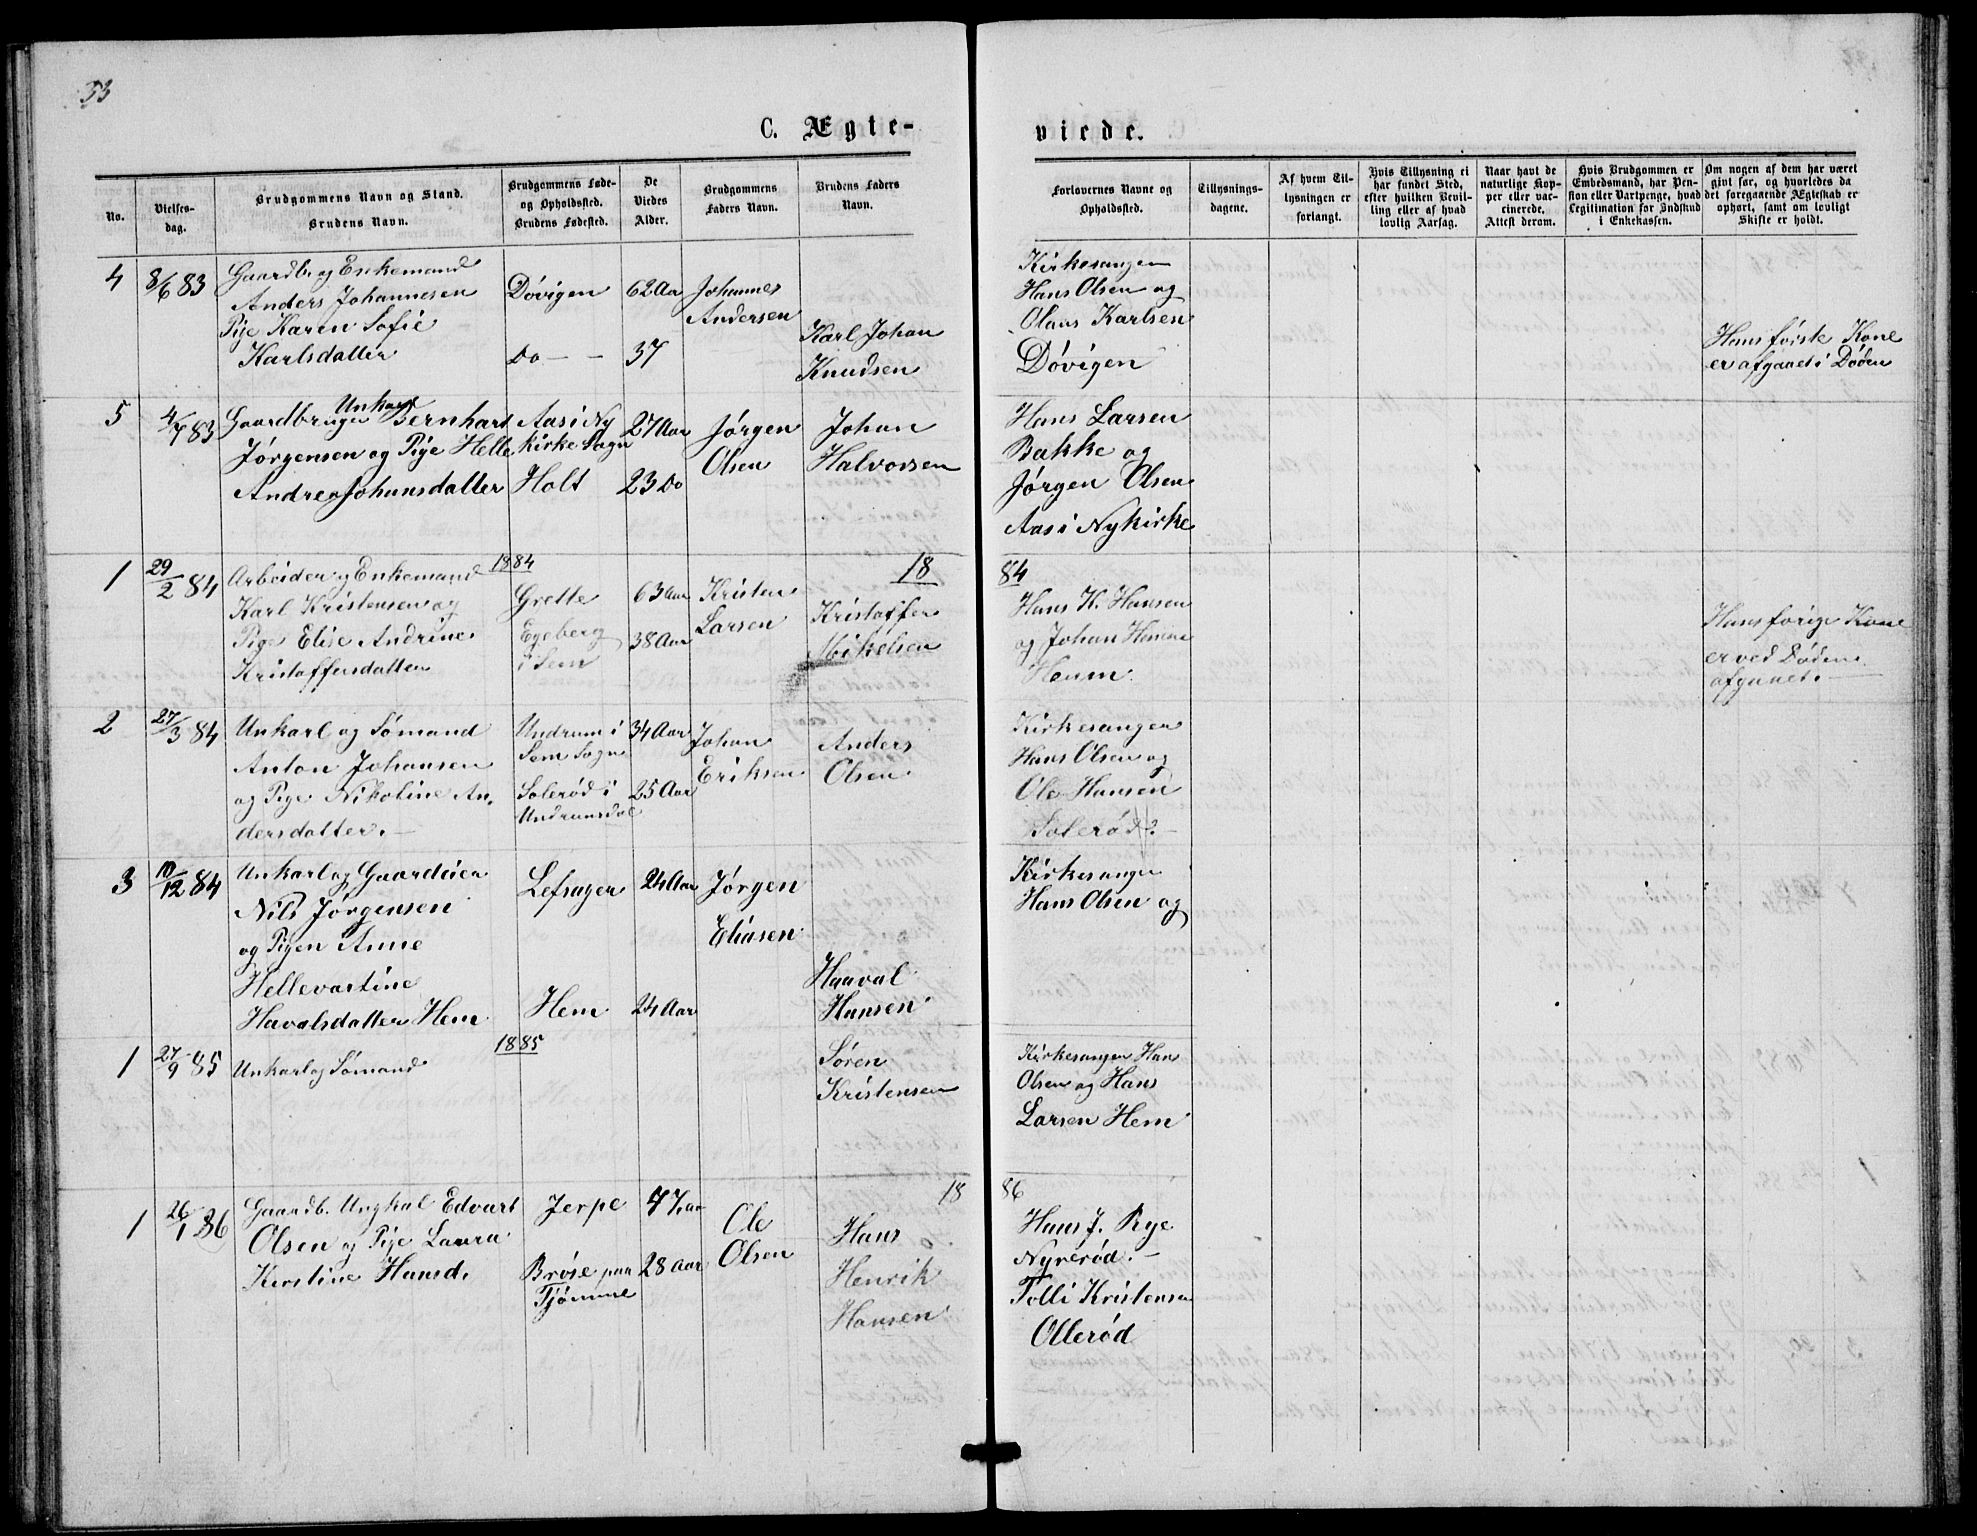 33
C. Ægte-
viede.
No.
Vielses-
dag.
Brudgommens Navn og Stand.
Brudens Navn.
Brudgommens Føde-
og Opholdssted.
Brudens Fødested.
De
Viedes
Alder.
Brudgommens
Faders Navn.
Brudens Faders
Navn.
Forlovernes Navne og
Opholdssted.
Tillysnings-
dagene.
Af hvem Til-
lysningen er
forlangt.
Hvis Tillysning ei
har fundet Sted,
efter hvilken Bevil-
ling eller af hvad
lovlig Aarsag.
Naar havt de
naturlige Kop-
per eller vac-
cinerede.
Attest derom.
Hvis Brudgommen er
Embedsmand, har Pen-
sion eller Vartpenge, hvad
Legitimation for Indskud
i Enkekassen.
Om nogen af dem har været
givt før, og hvorledes da
det foregaaende Ægteskab er
ophørt, samt om lovligt
Skifte er holdt.
4
8/6 83
Gaardb. og Enkemand
Anders Johannesen
Pige Karen Sofie
Karlsdatter
Dövigen
Do - -
62 Aar
37
Johannes
Andersen
Karl Johan
Knudsen
Kirkesanger
Hans Olsen og
Olaus Karlsen
Dövigen
Hans förste Kone
er afgaaet i Döden
5
4/7 83
Unkarl
Gaardbruger Bernhart
Jørgensen og Pige Helle
Andrea Johansdatter
Aas i Ny
kirke Sogn
Holt
27 Aar
23 Do
Jørgen
Olsen
Johan
Halvorsen
Hans Larsen
Bakke og
Jørgen Olsen
Aas i Nykirke
1884
18
84
1
29/2 84
Arbeider og Enkemand
Karl Kristensen og
Pige Elise Andrine
Kristoffersdatter
Grette
Egeberg
i Sem
63 Aar
38 Aar
Kristen
Larsen
Kristoffer
Mikelsen
Hans K. Hansen
og Johan Hansen
Heum.
Hans forige Kone
er ved Döden
afgaaet. -
2
27/3 84
Unkarl og Sømand
Anton Johansen
og Pige Nikoline An-
dersdatter. -
Undrum i
Sem Sogn
Solerød i
Undrumsdal
34 Aar
25 Aar
Johan
Eriksen
Anders
Olsen
Kirkesanger
Hans Olsen og
Ole Hansen
Solerød. -
3
10/12 84
Unkarl og Gaardeier
Nils Jørgensen
og Pigen Anne
Hellevartine
Havalsdatter Hem
Lefsager
Hem
24 Aar
24 Aar
Jørgen
Eliasen
Haaval
Hansen
Kirkesanger
Hans Olsen og
1885
1
27/9 85
Unkarl og Sømand
Søren
Kristensen
Kirkesanger Hans
Olsen og Hans
Larsen Hem
18
86
1
26/1 86
Gaardb. Ungkal Edvart
Olsen og Pige Laura
Kirstine Hansd.
Jerpe
Brøse paa
Tjømme
47 aar
28 Aar
Ole
Olsen
Hans
Henrik
Hansen
Hans J. Rye
Nyrerød. -
Tolli Kristensen
Ollerød